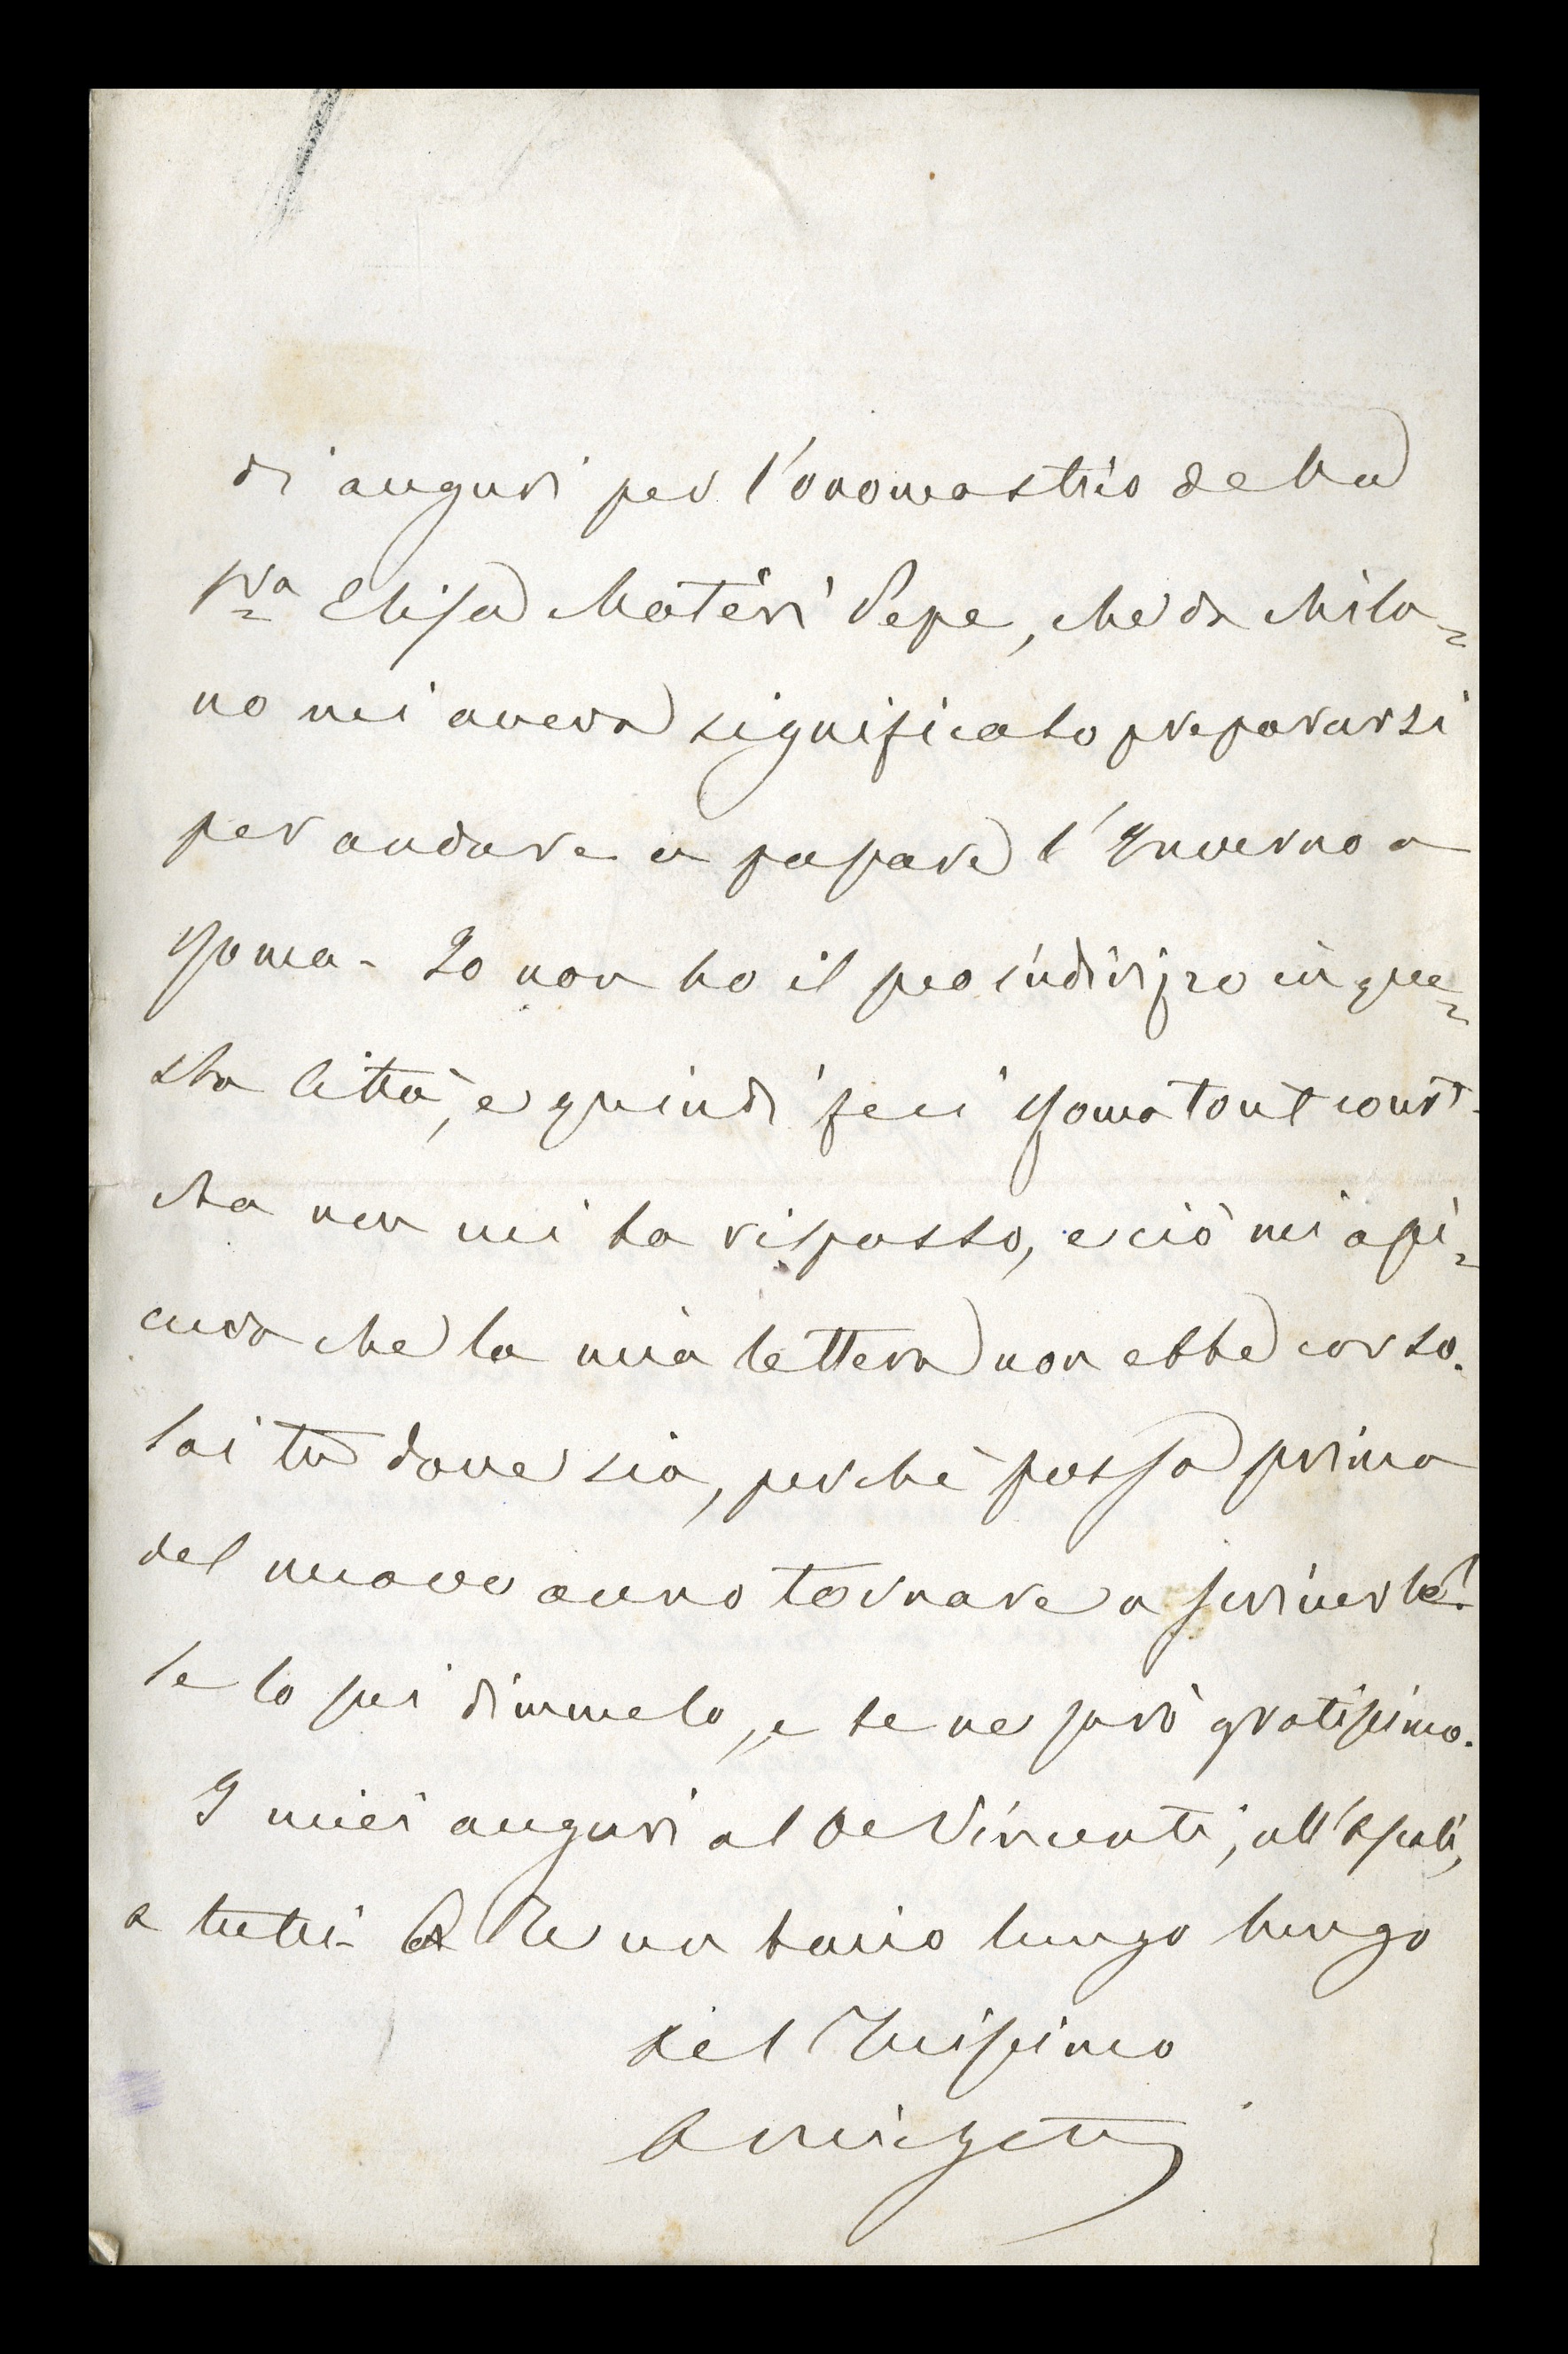 di auguri per l'onomastico della
Sra Elisa Materi Pepe, che da Mila=
no mi aveva significato prepararsi
per andare a passare l'Inverno a
Roma - Io non ho il suo indirizzo in que=
sta Città, e quindi feci Roma tout court.
Ma non mi ha risposto, e ciò mi assi=
cura che la mia lettera non ebbe corso.
Sai tu dove sia, perchè possa prima
del nuovo anno tornare a scriverle?
Se lo sai dimmelo, e te ne sarò gratissimo.
I miei auguri al De Vincenti, all'Ascoli,
a tutti - A Te un bacio lungo lungo
del Tuissimo